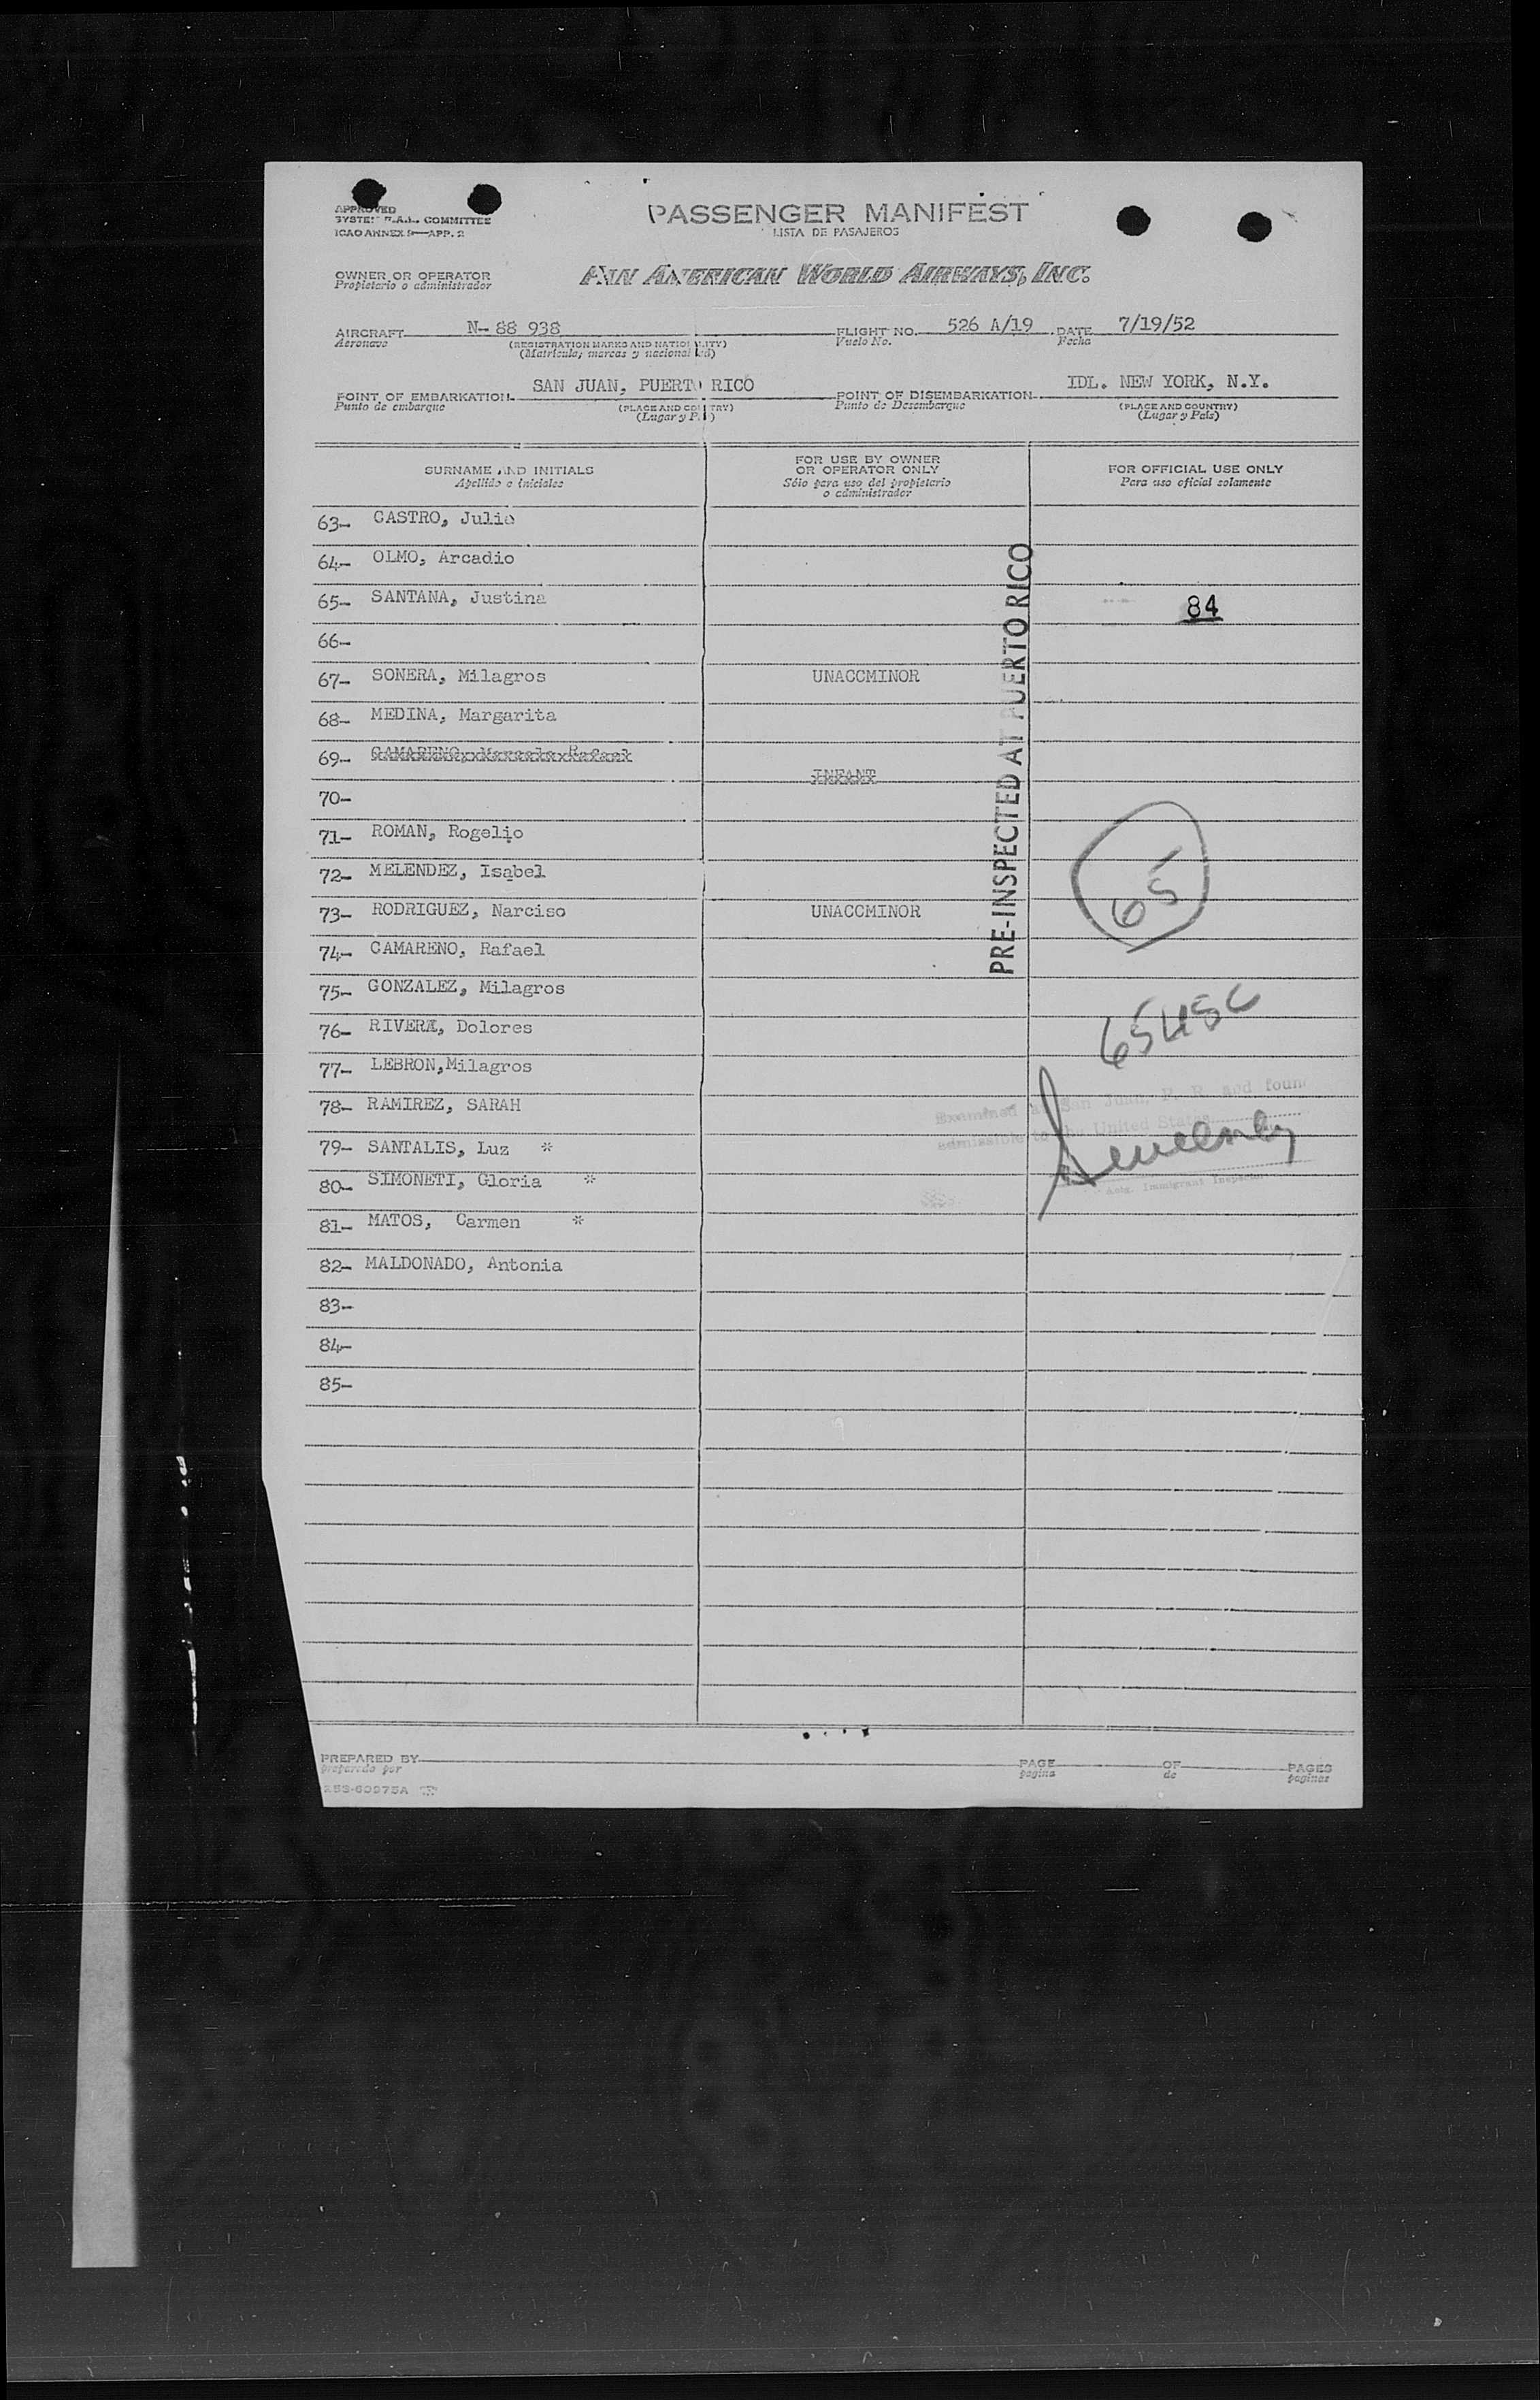 APPROVED
SYSTEM F.A.L. COMMITTEE
ICAO ANNEX 9—APP. 2
PASSENGER MANIFEST
LISTA DE PASAJEROS
OWNER OR OPERATOR
Propietario o administrador
PAN AMERICAN WORLD AIRWAYS, INC.
AIRCRAFT N- 88 938 FLIGHT NO. 526 A/19 DATE 7/19/52
Aeronave (REGISTRATION MARKS AND NATIONALITY) Vuelo No. Fecha
(Matricula, marcas y nacionalidad)
POINT OF EMBARKATION SAN JUAN, PUERTO RICO POINT OF DISEMBARKATION IDL. NEW YORK, N.Y.
Punto de embarque (PLACE AND COUNTRY) Punto de Desembarque (PLACE AND COUNTRY)
(Lugar y País) (Lugar y País)
SURNAME AND INITIALS
Apellido e iniciales
FOR USE BY OWNER
OR OPERATOR ONLY
Sólo para uso del propietario
o administrador
FOR OFFICIAL USE ONLY
Para uso oficial solamente
63- CASTRO, Julio
64- OLMO, Arcadio
65- SANTANA, Justina 84
66-
67- SONERA, Milagros UNACCMINOR
68- MEDINA, Margarita
69- CAMARENO, Rafael
INFANT
70-
71- ROMAN, Rogelio
72- MELENDEZ, Isabel
73- RODRIGUEZ, Narciso UNACCMINOR
74- CAMARENO, Rafael
75- GONZALEZ, Milagros
76- RIVERA, Dolores
77- LEBRON,Milagros
78- RAMIREZ, SARAH
79- SANTALIS, Luz *
80- SIMONETI, Gloria *
81- MATOS, Carmen *
82- MALDONADO, Antonia
83-
84-
85-
PRE-INSPECTED AT PUERTO RICO
65
65USC
Examined at San Juan, P. R. and found
admissible to the United States
Sweeney
Actg. Immigrant Inspector
PREPARED BY PAGE OF PAGES
preparado por pagina de paginas
253-60975A